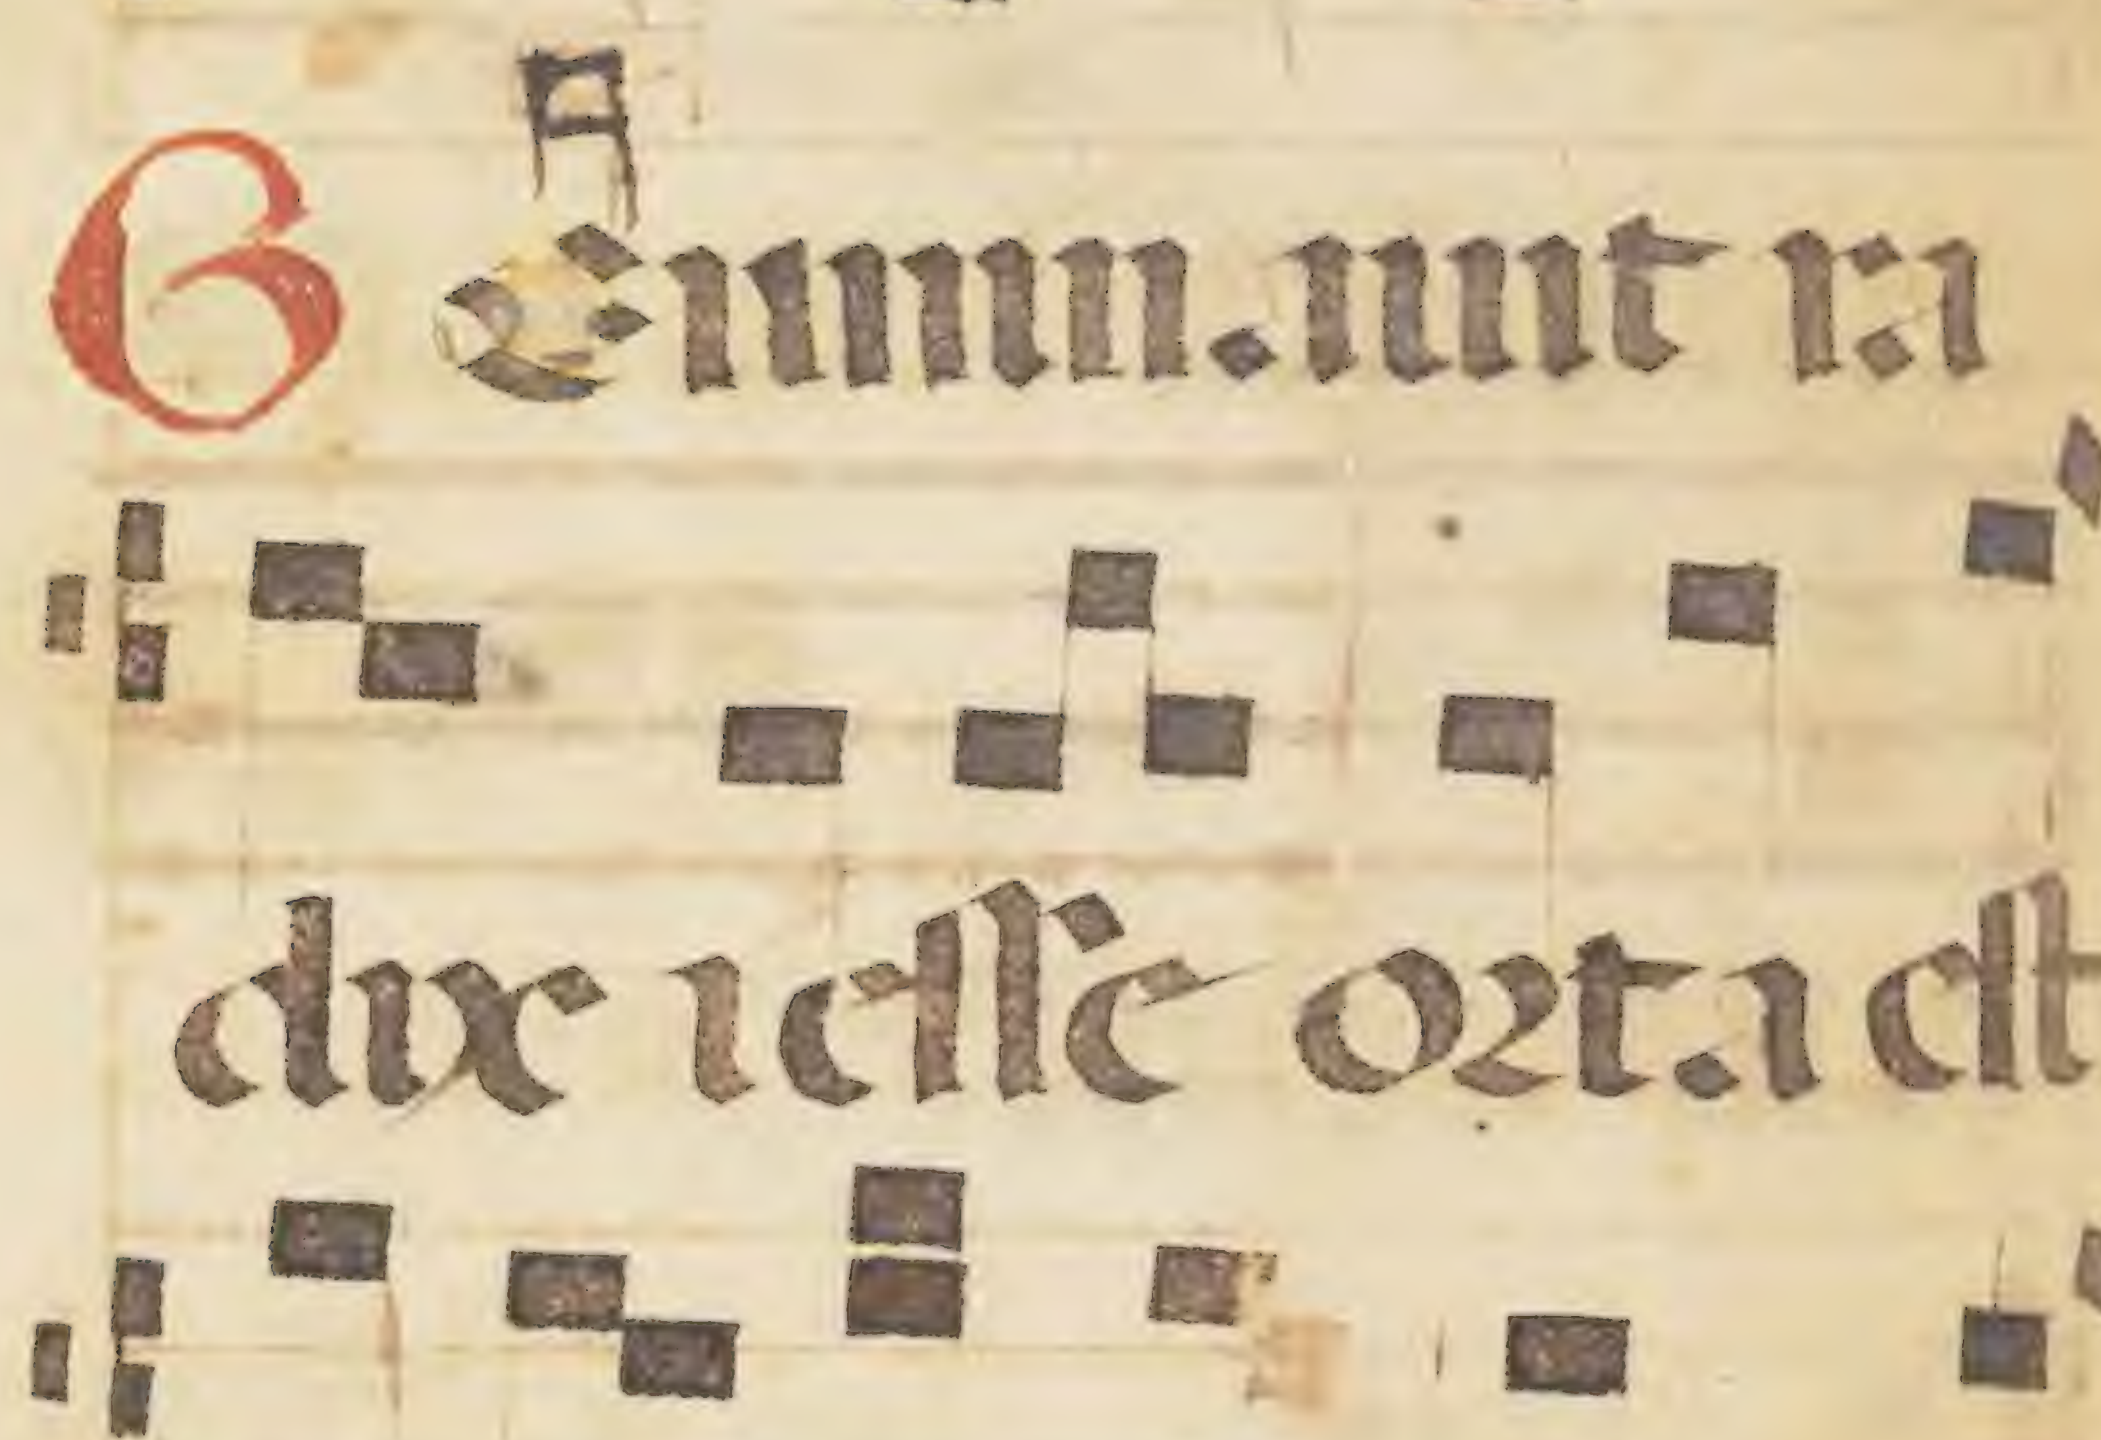 GErminauit ra
dix iesse orta est